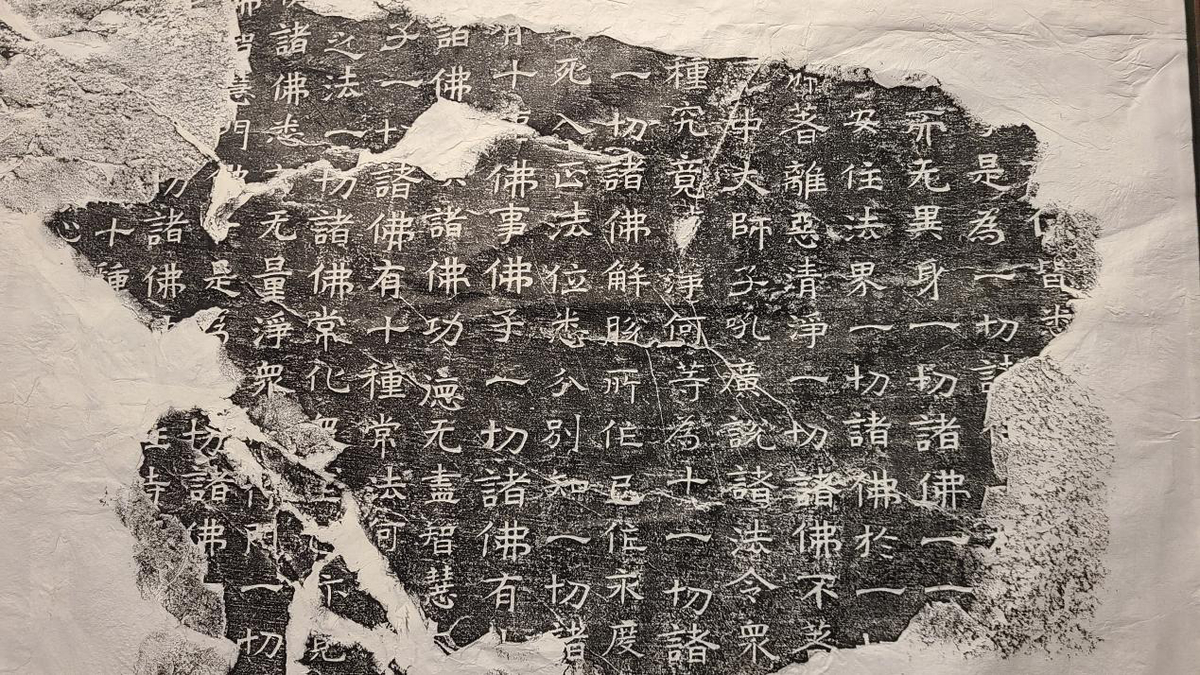 皆悉
是為一切諸
示无異身一切諸佛一一
安住法界一切諸佛於一
者離惡清淨一切諸佛不著
中大師子吼廣說諸法令衆
種究竟淨何等為十一切諸
一切諸佛解脫所作已住永度
死入正法位悉分別知一切諸
有十佛事佛子一切諸佛有
諸佛諸佛功德无盡智慧
子一切諸佛有十種常法何
之法一切諸佛常化衆示見
諸佛悉无量淨衆門一切
智慧門是為切諸佛
切諸佛
十種